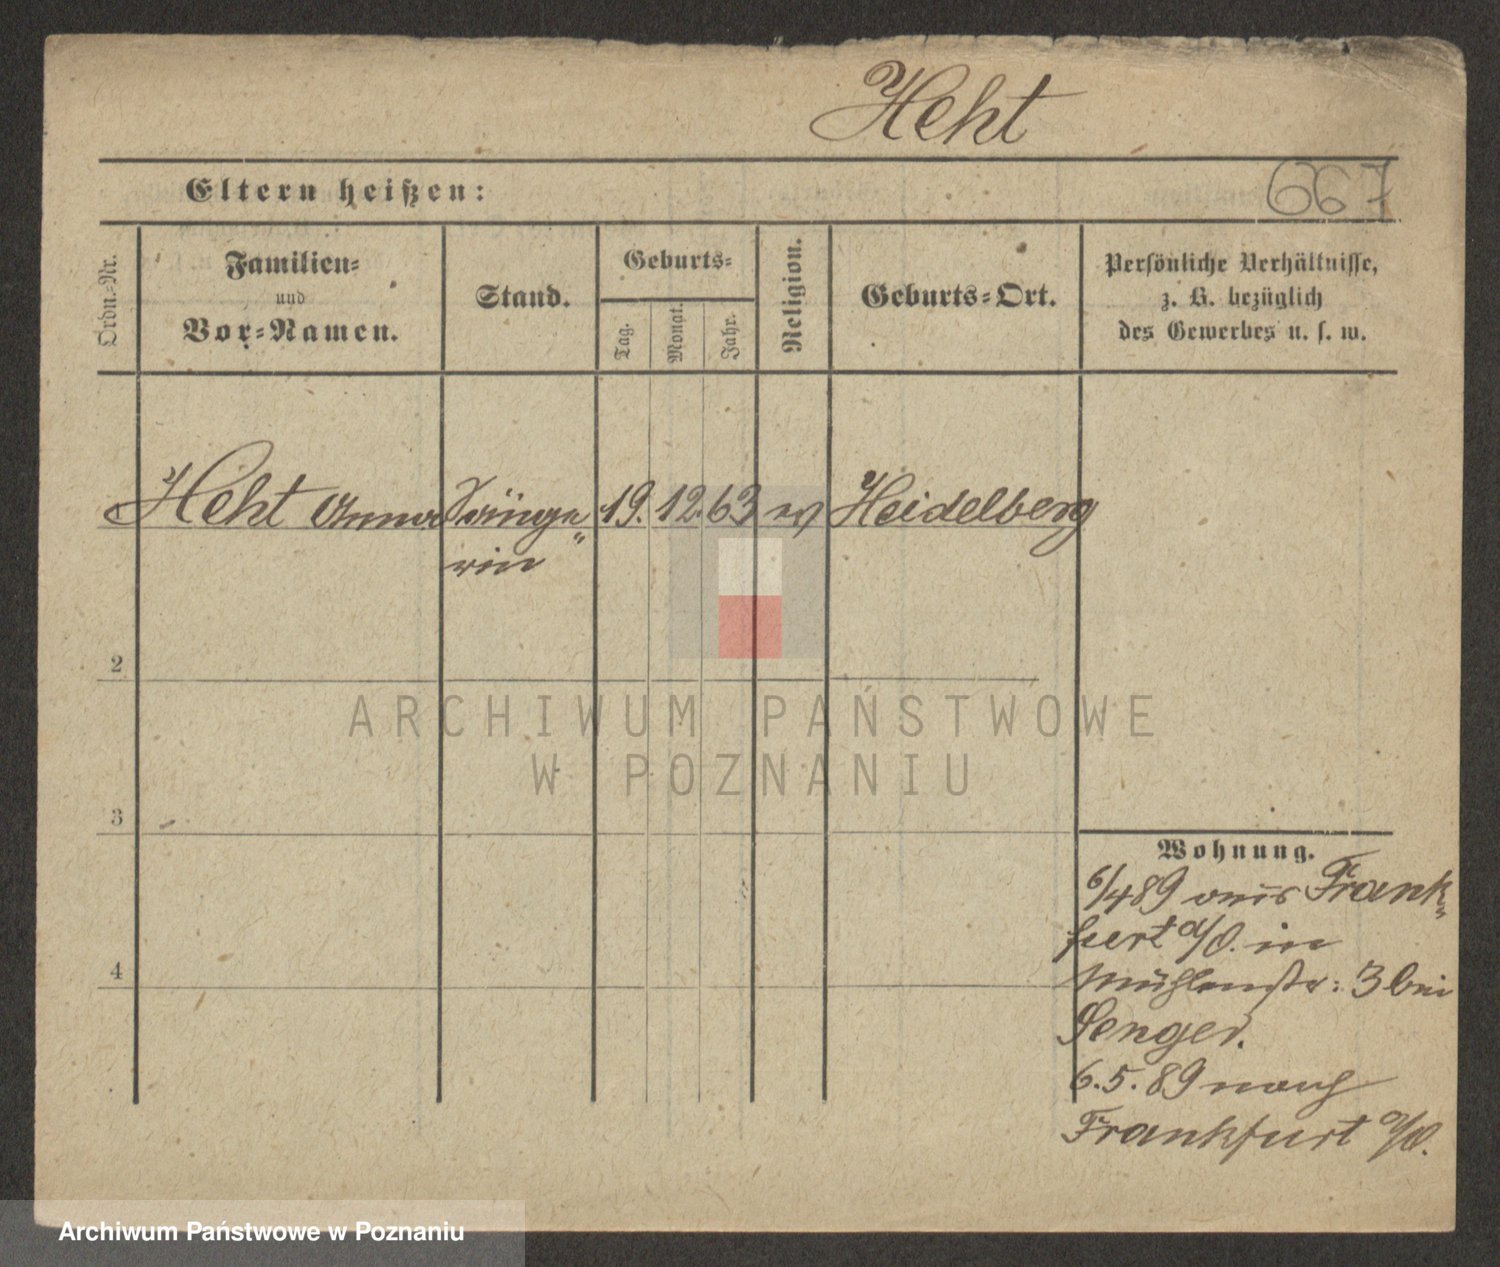 Heht
Eltern heißen:
667
Ordn.-Nr.
Familien-
und
Vor-Namen.
Stand.
Geburts-
Tag.
Monat.
Jahr.
Religion.
Geburts-Ort.
Persönliche Verhältnisse,
z. B. bezüglich
des Gewerbes u. s. w.
Heht Anna Sänge" 19. 12. 63 Heidelberg
rin
2
ARCHIWUM PAŃSTWOWE
W POZNANIU
3
Wohnung.
6/4 89 aus Frank"
furt a/O. in
4
Mühlenstr: 3 bei
Senger.
6.5.89 nach
Frankfurt a/O.
Archiwum Państwowe w Poznaniu